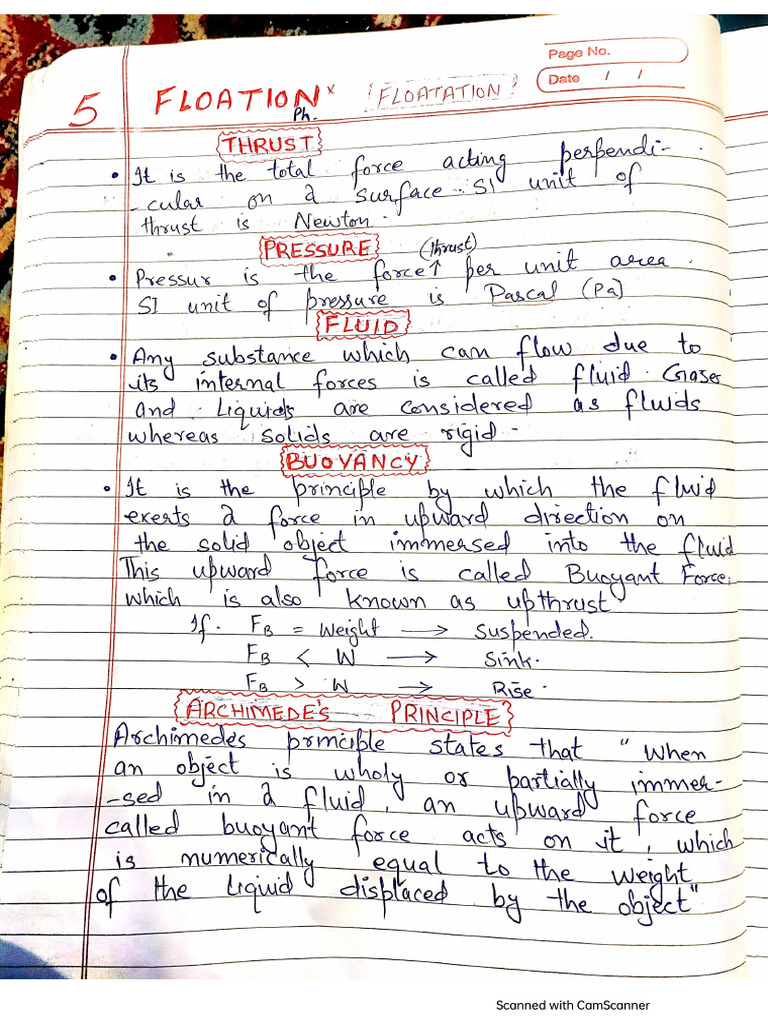 Page No.
Date / /
5 FLOATION x [FLOATATION]
Ph.
THRUST
• It is the total force acting perpendi-
-cular on a surface. SI unit of
thrust is Newton.
PRESSURE (thrust)
• Pressur is the force↑ per unit area.
SI unit of pressure is Pascal (Pa)
FLUID
• Any substance which can flow due to
its internal forces is called fluid. Gases
and Liquids are considered as fluids
whereas solids are rigid.
BUOYANCY
• It is the principle by which the fluid
exerts a force in upward direction on
the solid object immersed into the fluid
This upward force is called Buoyant Force,
which is also known as upthrust.
If. FB = Weight → Suspended.
FB < W → Sink.
FB > W → Rise.
ARCHIMEDE'S PRINCIPLE
Archimedes principle states that "when
an object is wholy or partially immer-
-sed in a fluid, an upward force
called buoyant force acts on it, which
is numerically equal to the weight
of the liquid displaced by the object"
Scanned with CamScanner